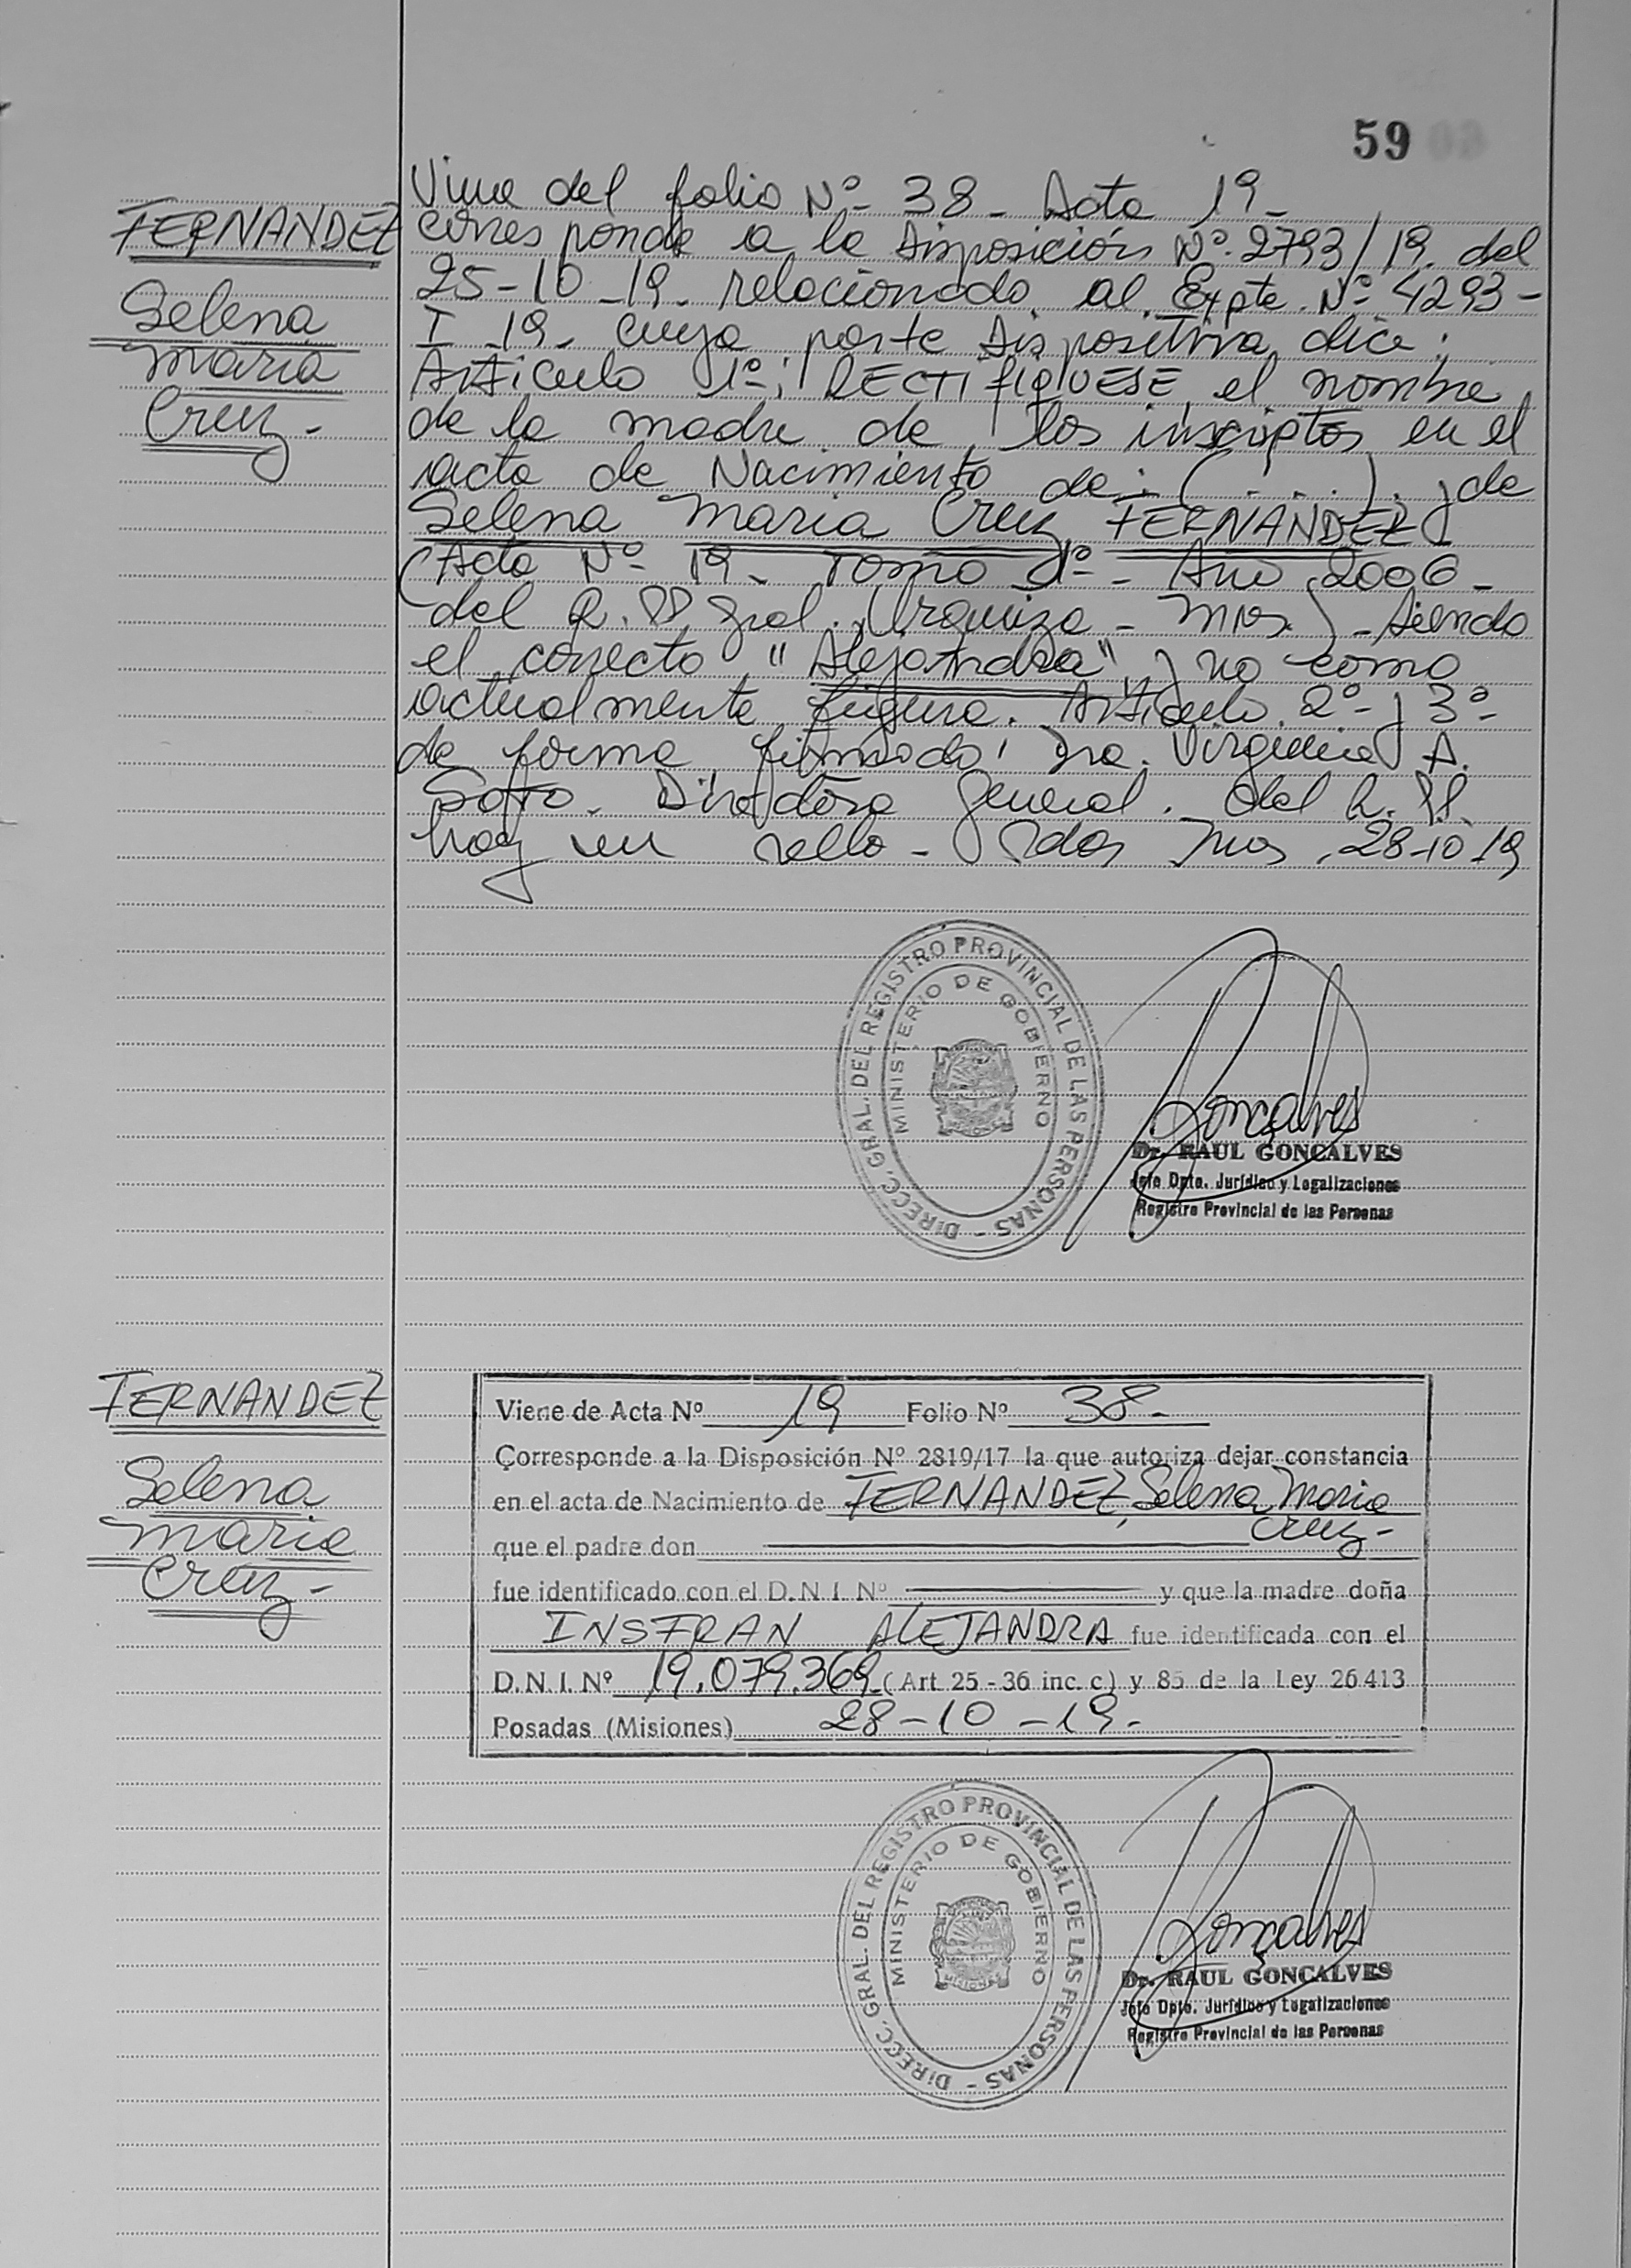 59
FERNANDEZ
Selena
Maria
Cruz -
Viene del folio Nº 38 - Acta 19 -
corresponde a la Disposición Nº 2793/19. del
25-10-19. relacionado al Expte. Nº 4293-
I-19- cuya parte dispositiva dice:
Artículo 1º: RECTIFIQUESE el nombre
de la madre de los inscriptos en el
acta de Nacimiento de: (. . .). y de
Selena Maria Cruz FERNANDEZ
(Acta Nº 19 - Tomo 1º - Año 2006 -
del R.PP. Gral. Urquiza - Mnes) - siendo
el correcto "Alejandra" y no como
actualmente figura. Artículo 2º y 3º
de forma firmado: Dra. Virginia A.
Soto. Directora General. del R.PP.
hay un sello - Pdas Mnes, 28-10-19
DIRECC. GRAL. DEL REGISTRO PROVINCIAL DE LAS PERSONAS -
MINISTERIO DE GOBIERNO
Goncalves
Dr. RAUL GONCALVES
Jefe Dpto. Jurídico y Legalizaciones
Registro Provincial de las Personas
FERNANDEZ
Selena
Maria
Cruz -
Viene de Acta Nº 19 Folio Nº 38 -
Corresponde a la Disposición Nº 2819/17 la que autoriza dejar constancia
en el acta de Nacimiento de FERNANDEZ, Selena Maria
Cruz -
que el padre don
fue identificado con el D.N.I. Nº y que la madre doña
INSFRAN ALEJANDRA fue identificada con el
D.N.I. Nº 19.079.369 - (Art. 25 - 36 inc. c) y 85 de la Ley 26413
Posadas (Misiones) 28-10-19-
DIRECC. GRAL. DEL REGISTRO PROVINCIAL DE LAS PERSONAS -
MINISTERIO DE GOBIERNO
MISIONES
Goncalves
Dr. RAUL GONCALVES
Jefe Dpto. Jurídico y Legalizaciones
Registro Provincial de las Personas